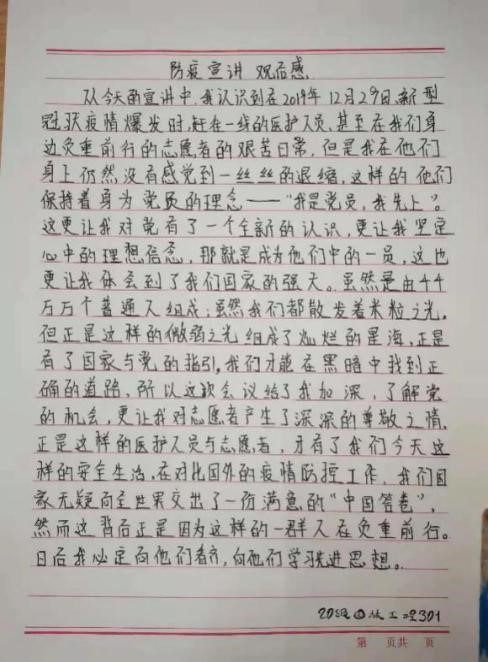 防疫宣讲 观后感
从今天的宣讲中,我认识到在2019年12月29日,新型
冠状疫情爆发时,赶在一线的医护人员,甚至在我们身
边负重前行的志愿者的艰苦日常,但是我在他们
身上仍然没有感觉到一丝丝的退缩,这样的他们
保持着身为党员的理念——“我是党员,我先上”。
这更让我对党有了一个全新的认识,更让我坚定
心中的理想信念,那就是成为他们中的一员,这也
更让我体会到了我们国家的强大。虽然是由44
万万个普通人组成;虽然我们都散发着米粒之光,
但正是这样的微弱之光组成了灿烂的星海,正是
有了国家与党的指引,我们才能在黑暗中找到正
确的道路,所以这次会议给了我加深,了解党
的机会,更让我对志愿者产生了深深的尊敬之情,
正是这样的医护人员与志愿者,才有了我们今天这
样的安全生活,在对比国外的疫情防控工作,我们国
家无疑向全世界交出了一份满意的“中国答卷”,
然而这背后正是因为这样的一群人在负重前行。
日后我必定向他们看齐,向他们学习先进思想。
20级 工 2301
第 页共 页